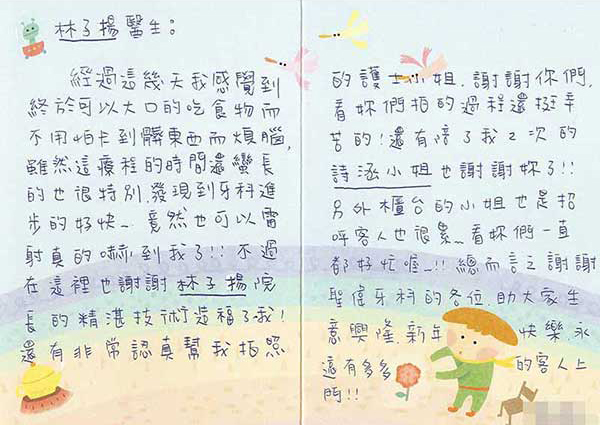 林子揚醫生：
經過這幾天我感覺到
終於可以大口的吃食物而
不用怕卡到髒東西而煩腦,
雖然這療程的時間還蠻長
的也很特別,發現到牙科進
步的好快… 竟然也可以雷
射真的嚇到我了!! 不過
在這裡也謝謝 林子揚院
長的精湛技術造福了我!
還有非常認真幫我拍照
的護士小姐. 謝謝你們,
看妳們拍的過程還挺辛
苦的! 還有陪了我2次的
詩涵小姐也謝謝妳了!!
另外櫃台的小姐也是招
呼客人也很累… 看妳們一直
都好忙喔…!! 總而言之謝謝
聖偉牙科的各位 助大家生
意興隆.新年快樂.永
遠有多多的客人上
門!!